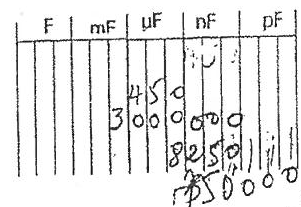 F mF µF nF pF
4 5 0
3 0 0 0 0 0 0
8 2 5 0
5 0 0 0 0